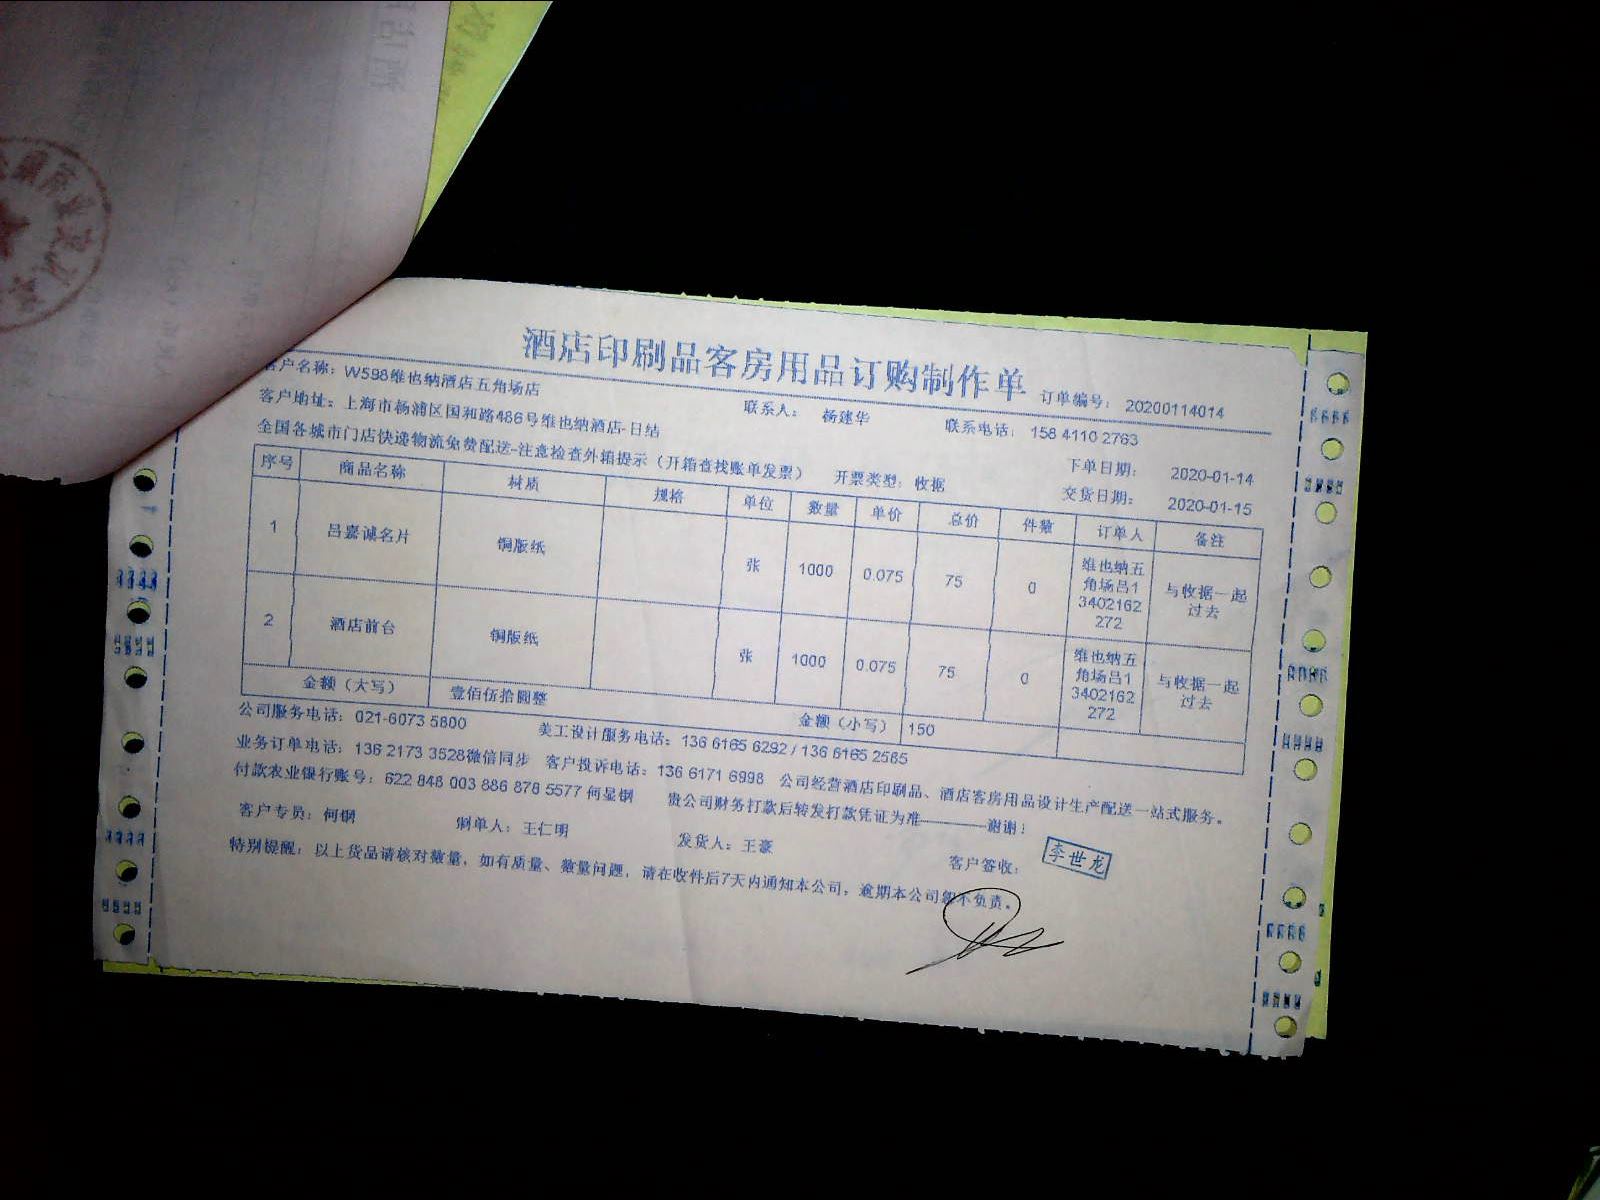 酒店印刷品客房用品订购制作单
订单编号: 20200114014
客户名称: W598维也纳酒店五角场店
联系人: 杨建华
联系电话: 158 4110 2763
客户地址: 上海市杨浦区国和路486号维也纳酒店-日结
下单日期: 2020-01-14
全国各城市门店快递物流免费配送-注意检查外箱提示（开箱查找账单发票） 开票类型: 收据
交货日期: 2020-01-15
序号 商品名称 材质 规格 单位 数量 单价 总价 件数 订单人 备注
1 吕嘉诚名片 铜版纸 张 1000 0.075 75 0 维也纳五角场吕13402162272 与收据一起过去
2 酒店前台 铜版纸 张 1000 0.075 75 0 维也纳五角场吕13402162272 与收据一起过去
金额（大写） 壹佰伍拾圆整 金额（小写） 150
公司服务电话: 021-6073 5800 美工设计服务电话: 136 6165 6292 / 136 6165 2565
业务订单电话: 136 2173 3528微信同步 客户投诉电话: 136 6171 6998 公司经营酒店印刷品、酒店客房用品设计生产配送一站式服务。
付款农业银行账号: 622 848 003 886 878 5577 何显钢 贵公司财务打款后转发打款凭证为准————谢谢！
客户专员: 何钢 制单人: 王仁明 发货人: 王豪 客户签收: 李世龙
特别提醒: 以上货品请核对数量，如有质量、数量问题，请在收件后7天内通知本公司，逾期本公司恕不负责。